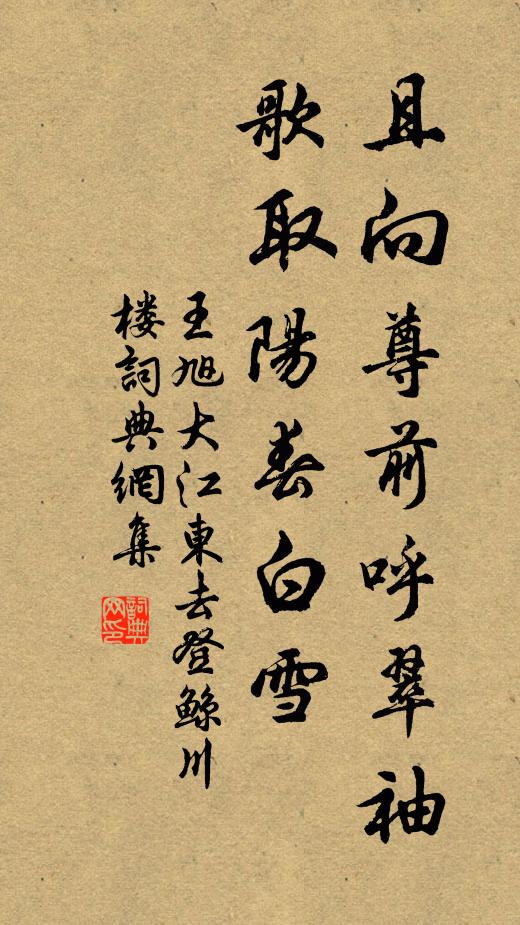 且向尊前呼翠袖
歌取陽春白雪
王旭大江東去登鲸川
楼詞典網集
詞典网印